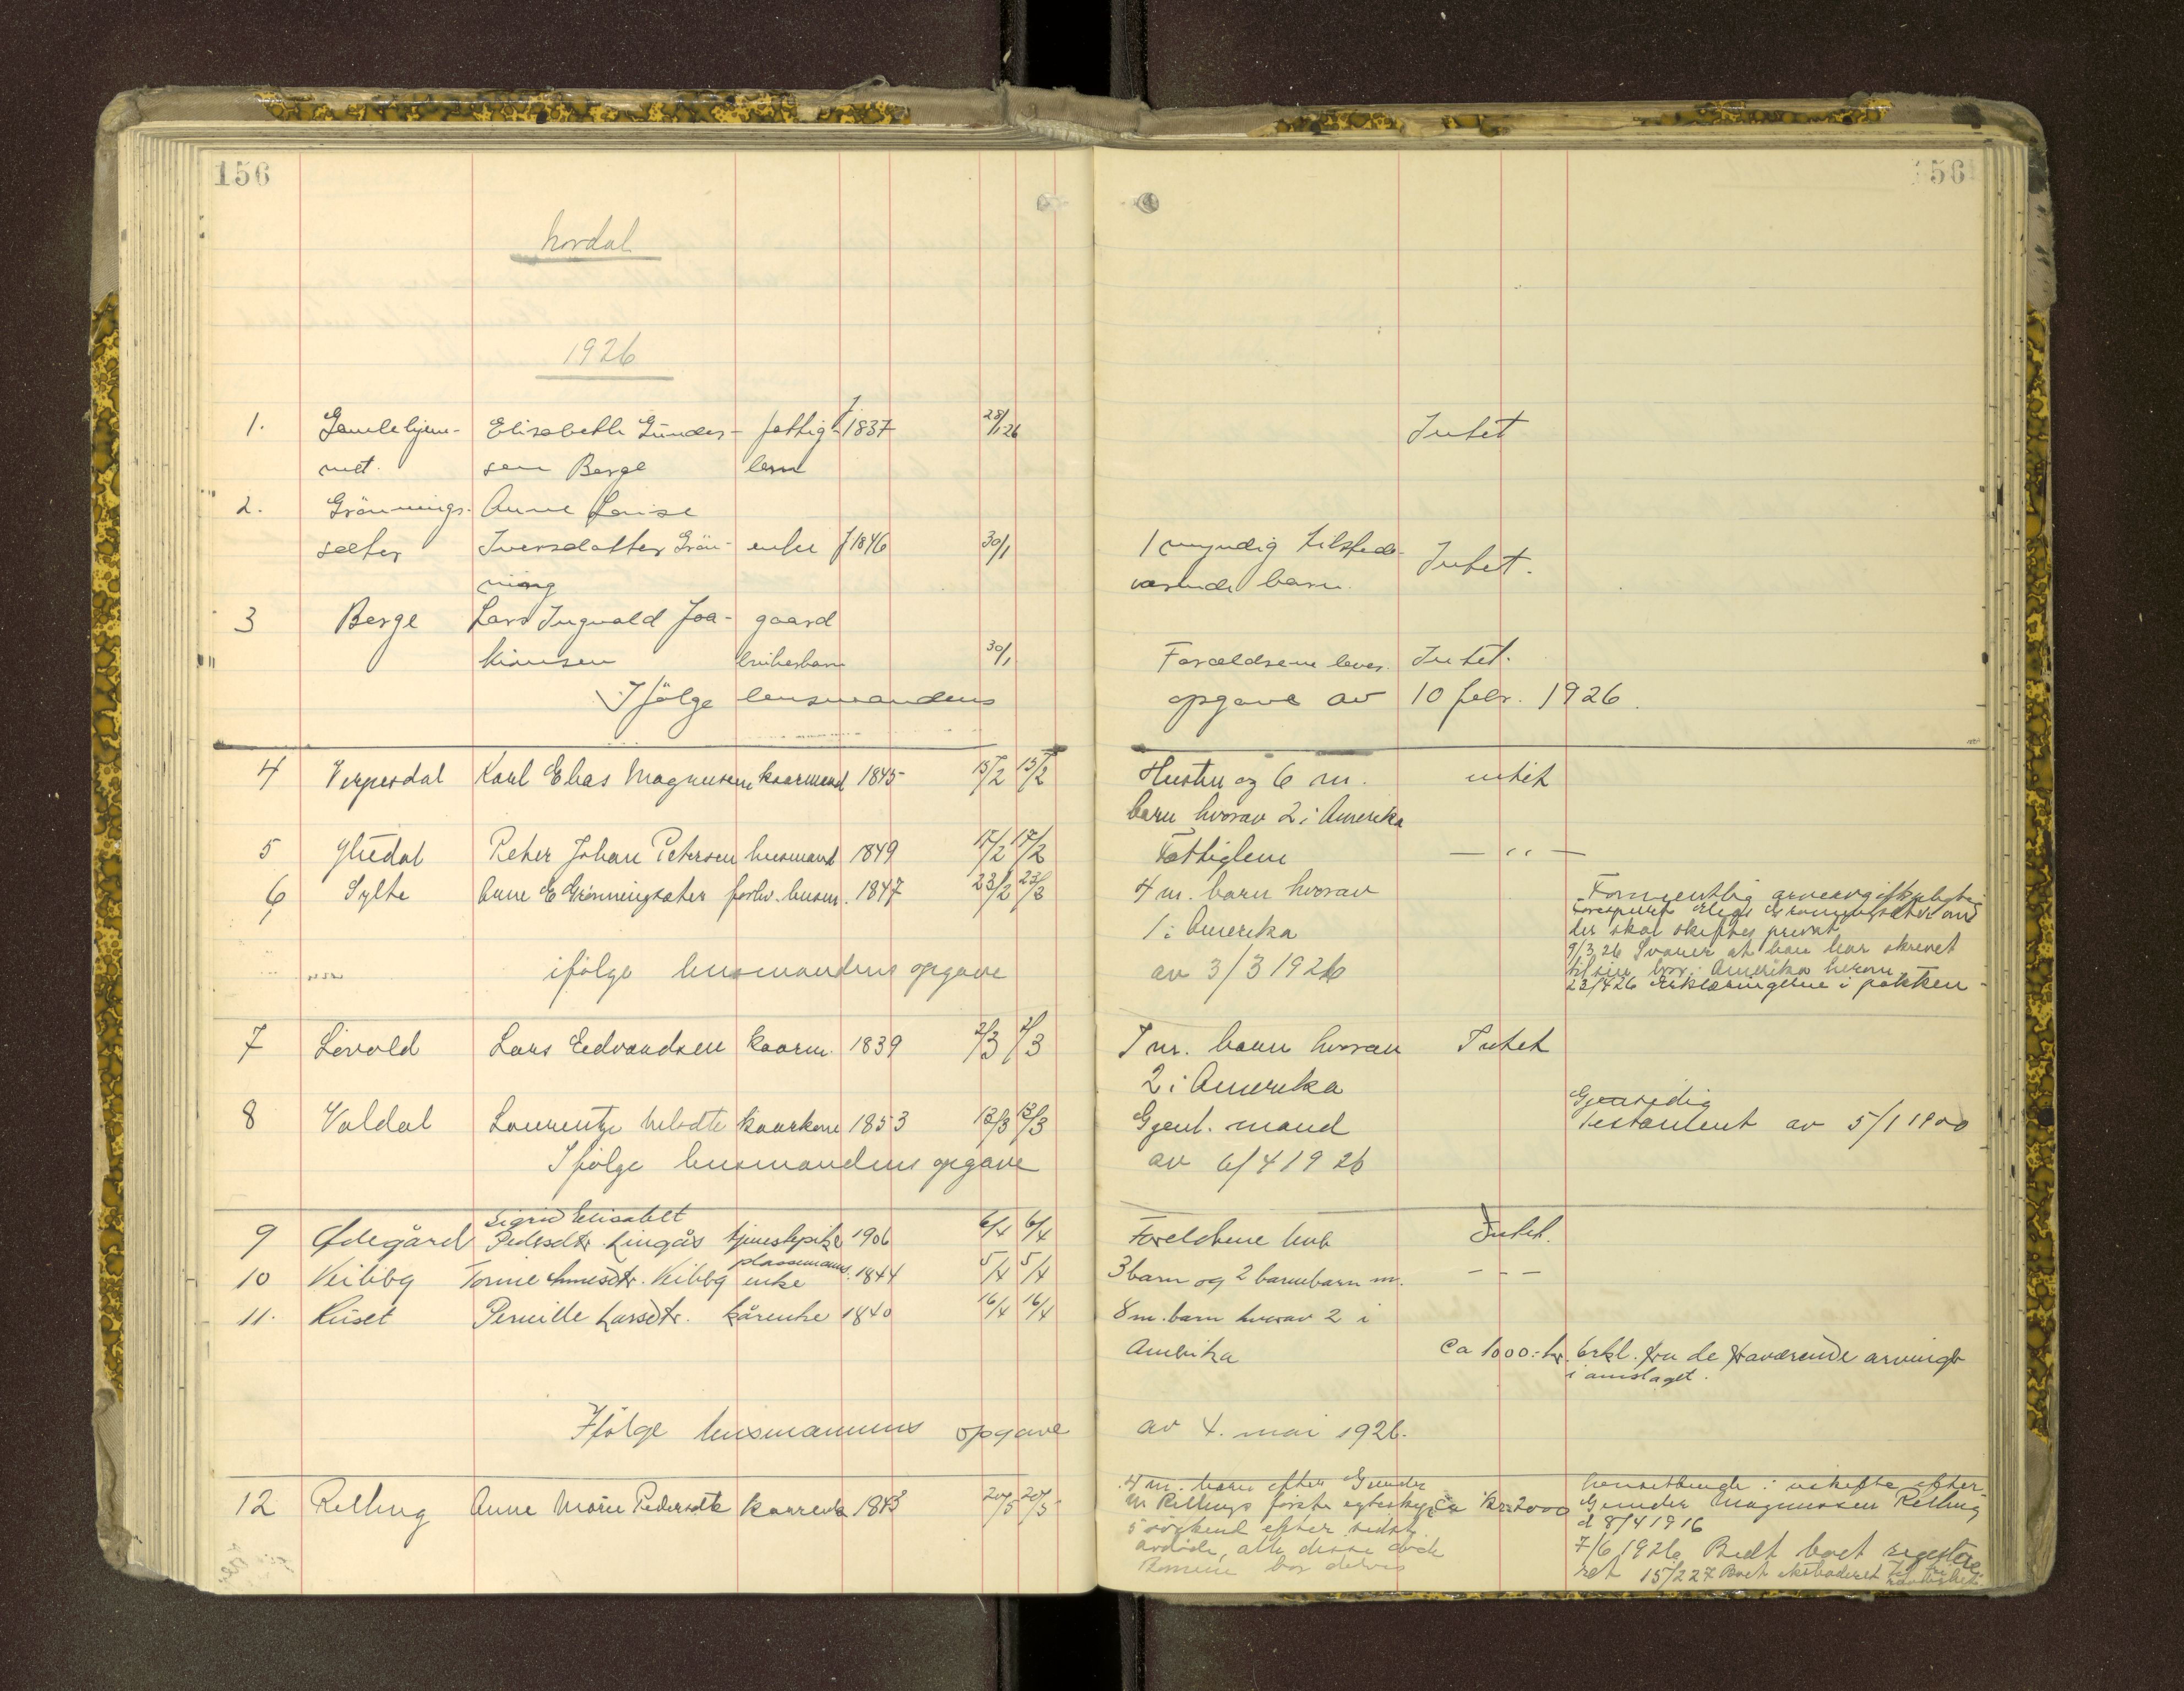 156
156
Nordal
1926
1. Gamlehjem- Elisabeth Gunder- fattig- f 1837 28/1 26 Intet
met. sen Berge lem
2. Grönnings- Anne Louise
sæter Iversdatter Grön- enke f 1846 30/1 1 myndig tilstede- Intet.
ning værende barn.
3 Berge Lars Ingvald Joa- gaard
kimsen brukerbarn 30/1 Forældrene lever. Intet.
Ifölge lensmandens opgave av 10 febr. 1926.
4 Virpesdal Karl Elias Magnusen kaarmand 1845 15/2 15/2 Hustru og 6 m. intet
barn hvorav 2 i Amerika
5 Uredal Peter Johan Petersen husmand 1849 17/2 17/2 Fattiglem — " —
6 Sylte Anne E Grönningsæter forhv. husm. 1847 23/2 23/2 4 m. barn hvorav
1 i Amerika
Formentlig arveavgiftspligtig
forespurt Elias Grønningsæter om
der skal skiftes privat
9/3 26 Svarer at han har skrevet
til sin bror i Amerika herom —
23/4 26 Erklæringene i pakken
ifölge lensmandens opgave av 3/3 1926
7 Livold Lars Edvardsen kaarm. 1839 2/3 2/3 7 m. barn hvorav Intet
2 i Amerika
8 Valdal Laurentze Melsdtr kaarkone 1853 13/3 13/3 Gjenl. mand
Gjensidig
Testament av 5/1 1900
Ifölge lensmandens opgave av 6/4 1926
Sigrid Elisabet
9 Ødegård Pedersdtr. Lingås tjenestepike 1906 6/4 6/4 Foreldrene lever Intet.
10 Veiberg Torine Annesdtr. Veiberg plassemanns enke 1844 5/4 5/4 3 barn og 2 barnebarn m. - - -
11. Ruset Pernille Larsdtr. kårenke 1840 16/4 16/4 8 m. barn hvorav 2 i
Amerika Ca 1000.- kr. Erkl. fra de fraværende arvinger
i omslaget.
Ifölge lensmannens opgave av 4. mai 1926.
12 Relling Anne Marie Pedersdtr kaarenke 1843 20/5 20/5
4 m. barn efter Gunder
M Rellings første egteskap ca kr 2000
5 søskend efter sidst
avdöde, alle disse døde
Barnene bor delvis
hensittende i uskifte efter
Gunder Magnussen Relling
d 8/4 1916
7/6 1926 Bedt boet registre-
ret 15/2 27 Boet ekstraderet til